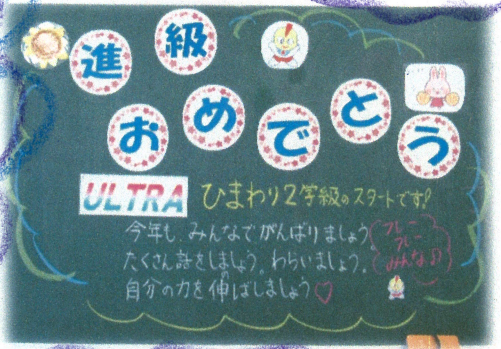 進級
おめでとう
ULTRA ひまわり2学級のスタートです!
今年も、みんなでがんばりましょう。
たくさん話をしましょう。わらいましょう。
自分の力を伸ばしましょう♡
フレー
フレー
みんな♪